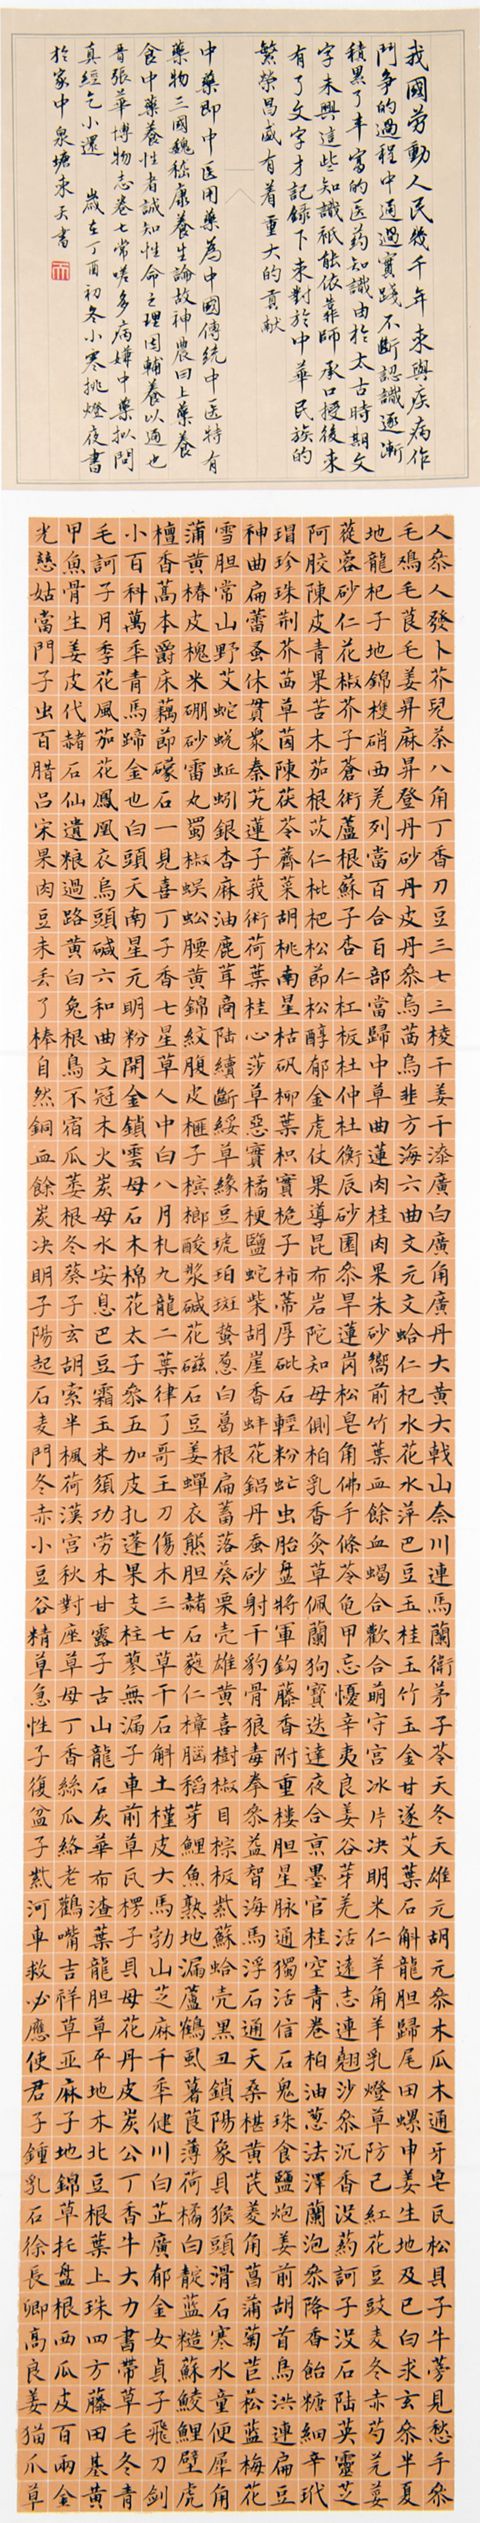 我國勞動人民幾千年来與疾病作
鬥争的過程中通過實踐不斷認識逐漸
積累了丰富的医药知識由於太古時期文
字未興這些知識祇能依靠師承口授後来
有了文字才記録下来對於中華民族的
繁榮昌盛有着重大的貢献
中藥即中医用藥為中國傳統中医特有
藥物三國魏嵇康養生論故神農曰上藥養
食中藥養性者誠知性命之理因輔養以通也
晋張華博物志卷七常嗟多病嬅中藥拟問
真經乞小還 歲在丁酉初冬小寒挑燈夜書
於家中泉塘東天書
人參人發卜芥兒茶八角丁香刀豆三七三棱干姜干漆廣白廣角廣丹大黄大戟山奈川連馬蘭衛茅子苓天冬天雄元胡元參木瓜木通牙皂瓦松貝子牛蒡見愁手參
毛鳩毛茛毛姜昇麻昇登丹砂丹皮丹參烏茜烏韭方海六曲文元文蛤仁杞水花水萍巴豆玉桂玉竹玉金甘遂艾葉石斛龍胆歸尾田螺申姜生地及已白求玄參半夏
地龍杞子地錦樸硝西羌列當百合百部當歸中草曲蓮肉桂肉果朱砂嚮前竹葉血餘血蝎合歡合萌守宮冰片决明米仁羊角羊乳燈草防己紅花豆豉麦冬赤芍芫荽
蓯蓉砂仁花椒芥子蒼術蘆根蘇子杏仁杠板杜仲杜衡辰砂園參旱蓮崗松皂角佛手條苓龟甲忘憂辛夷良姜谷芽羌活遠志連翹沙參沉香没葯訶子没石陆英靈芝
阿胶陳皮青果苦木茄根苡仁枇杷松節松醇郁金虎仗果導昆布岩陀知母側柏乳香灸草佩蘭狗寶迭達夜合京墨官桂空青卷柏油葱法澤蘭泡參降香飴糖細辛玳
瑁珍珠荆芥茴草茵陳茯苓薺菜胡桃南星枯矾柳葉枳實栀子柿蒂厚砒石輕粉虻虫胎盤將軍鈎藤香附重楼胆星脉通獨活信石鬼珠食鹽炮姜前胡首烏洪連扁豆
神曲扁蕾蚤休貫衆秦艽蓮子莪術荷葉桂心莎草惡實橘梗鹽蛇柴胡崖香蚌花鋁丹蚕砂射干豹骨狼毒拳參益智海馬浮石通天桑椹黄芪菱角菖蒲菊苣菘蓝梅花
雪胆常山野艾蛇蜕蚯蚓銀杏麻油鹿茸商陆續斷綏草緣豆琥珀斑蝥葱白葛根扁蓄落葵粟壳雄黄喜樹椒目棕板紫蘇蛤壳黑丑鎖陽象貝猴頭滑石寒水童便犀角
蒲黄椿皮槐米硼砂雷丸蜀椒蜈蚣腰黄錦紋腹皮榧子檳榔酸漿碱花磁石豆姜蟬衣熊胆赭石蕤仁樟腦稻芽鯉魚熟地漏蘆鶴虱薯茛薄荷橘白靛蓝糙蘇鯪鯉壁虎
檀香蒿本爵床藕節礞石一見喜丁子香七星草人中白八月札九龍二葉律了哥王刀傷木三七草干石斛土槿皮大馬勃山芝麻千年健川白芷廣郁金女貞子飛刀剑
小百科萬年青馬蹄金也白頭天南星元明粉開金鎖雲母石木棉花太子參五加皮扎蓬果支柱蓼無漏子車前草瓦楞子貝母花丹皮炭公丁香牛大力書帶草毛冬青
毛訶子月季花風茄花鳳凰衣烏頭碱六和曲文冠木火炭母水安息巴豆霜玉米須功劳木甘露子古山龍石灰華布渣葉龍胆草平地木北豆根葉上珠四方藤田基黄
甲魚骨生姜皮代赭石仙遺粮過路黄白兔根鳥不宿瓜蒌根冬葵子玄胡索半楓荷漢宫秋對座草母丁香絲瓜絡老鸛嘴吉祥草亚麻子地錦草托盘根西瓜皮百兩金
光慈姑當門子出百腊吕宋果肉豆未丢了棒自然銅血餘炭决明子陽起石麦門冬赤小豆谷精草急性子復盆子紫河車救必應使君子鍾乳石徐長卿高良姜猫爪草